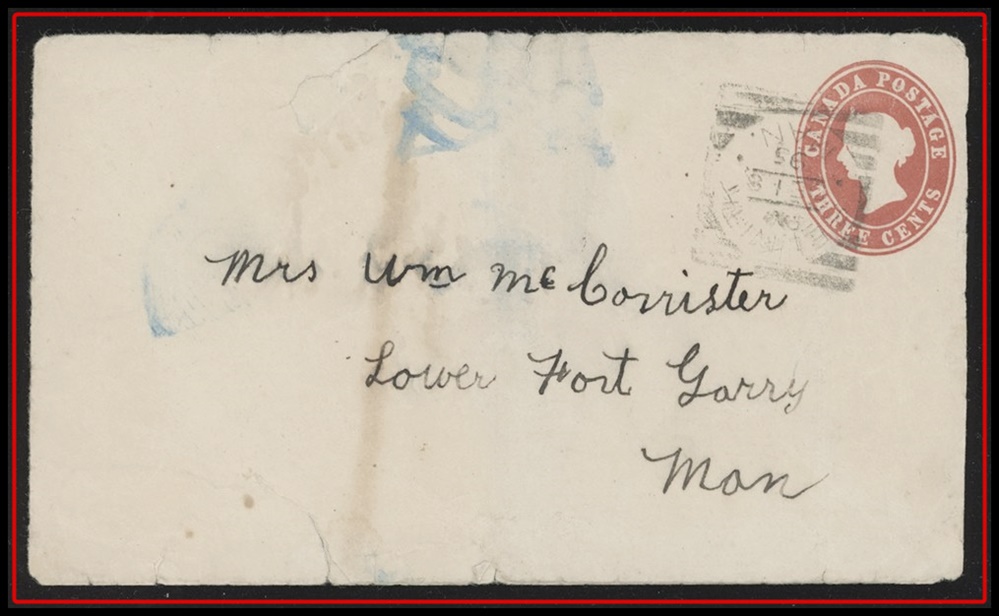 CANADA POSTAGE
THREE CENTS
Mrs Wm McCorrister
Lower Fort Garry
Man